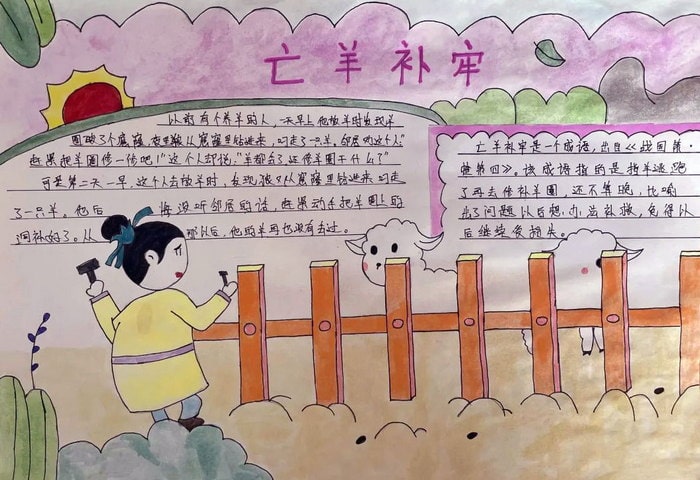 亡羊补牢
以前有个养羊的人，一天早上他放羊时发现羊
圈破了个窟窿，夜里狼从窟窿里钻进来，叼走了一只羊。邻居劝这个人"
赶紧把羊圈修一修吧！"这个人却说："羊都丢了还修羊圈干什么？"
可是第二天一早，这个人去放羊时，发现狼又从窟窿里钻进来叼走
了一只羊。他后悔没听邻居的话，赶紧动手把羊圈上的
洞补好了。从那以后，他的羊再也没有丢过。
亡羊补牢是一个成语，出自《战国策·
楚策四》。该成语指的是指羊逃跑
了再去修补羊圈，还不算晚，比喻
出了问题以后想办法补救，免得以
后继续受损失。